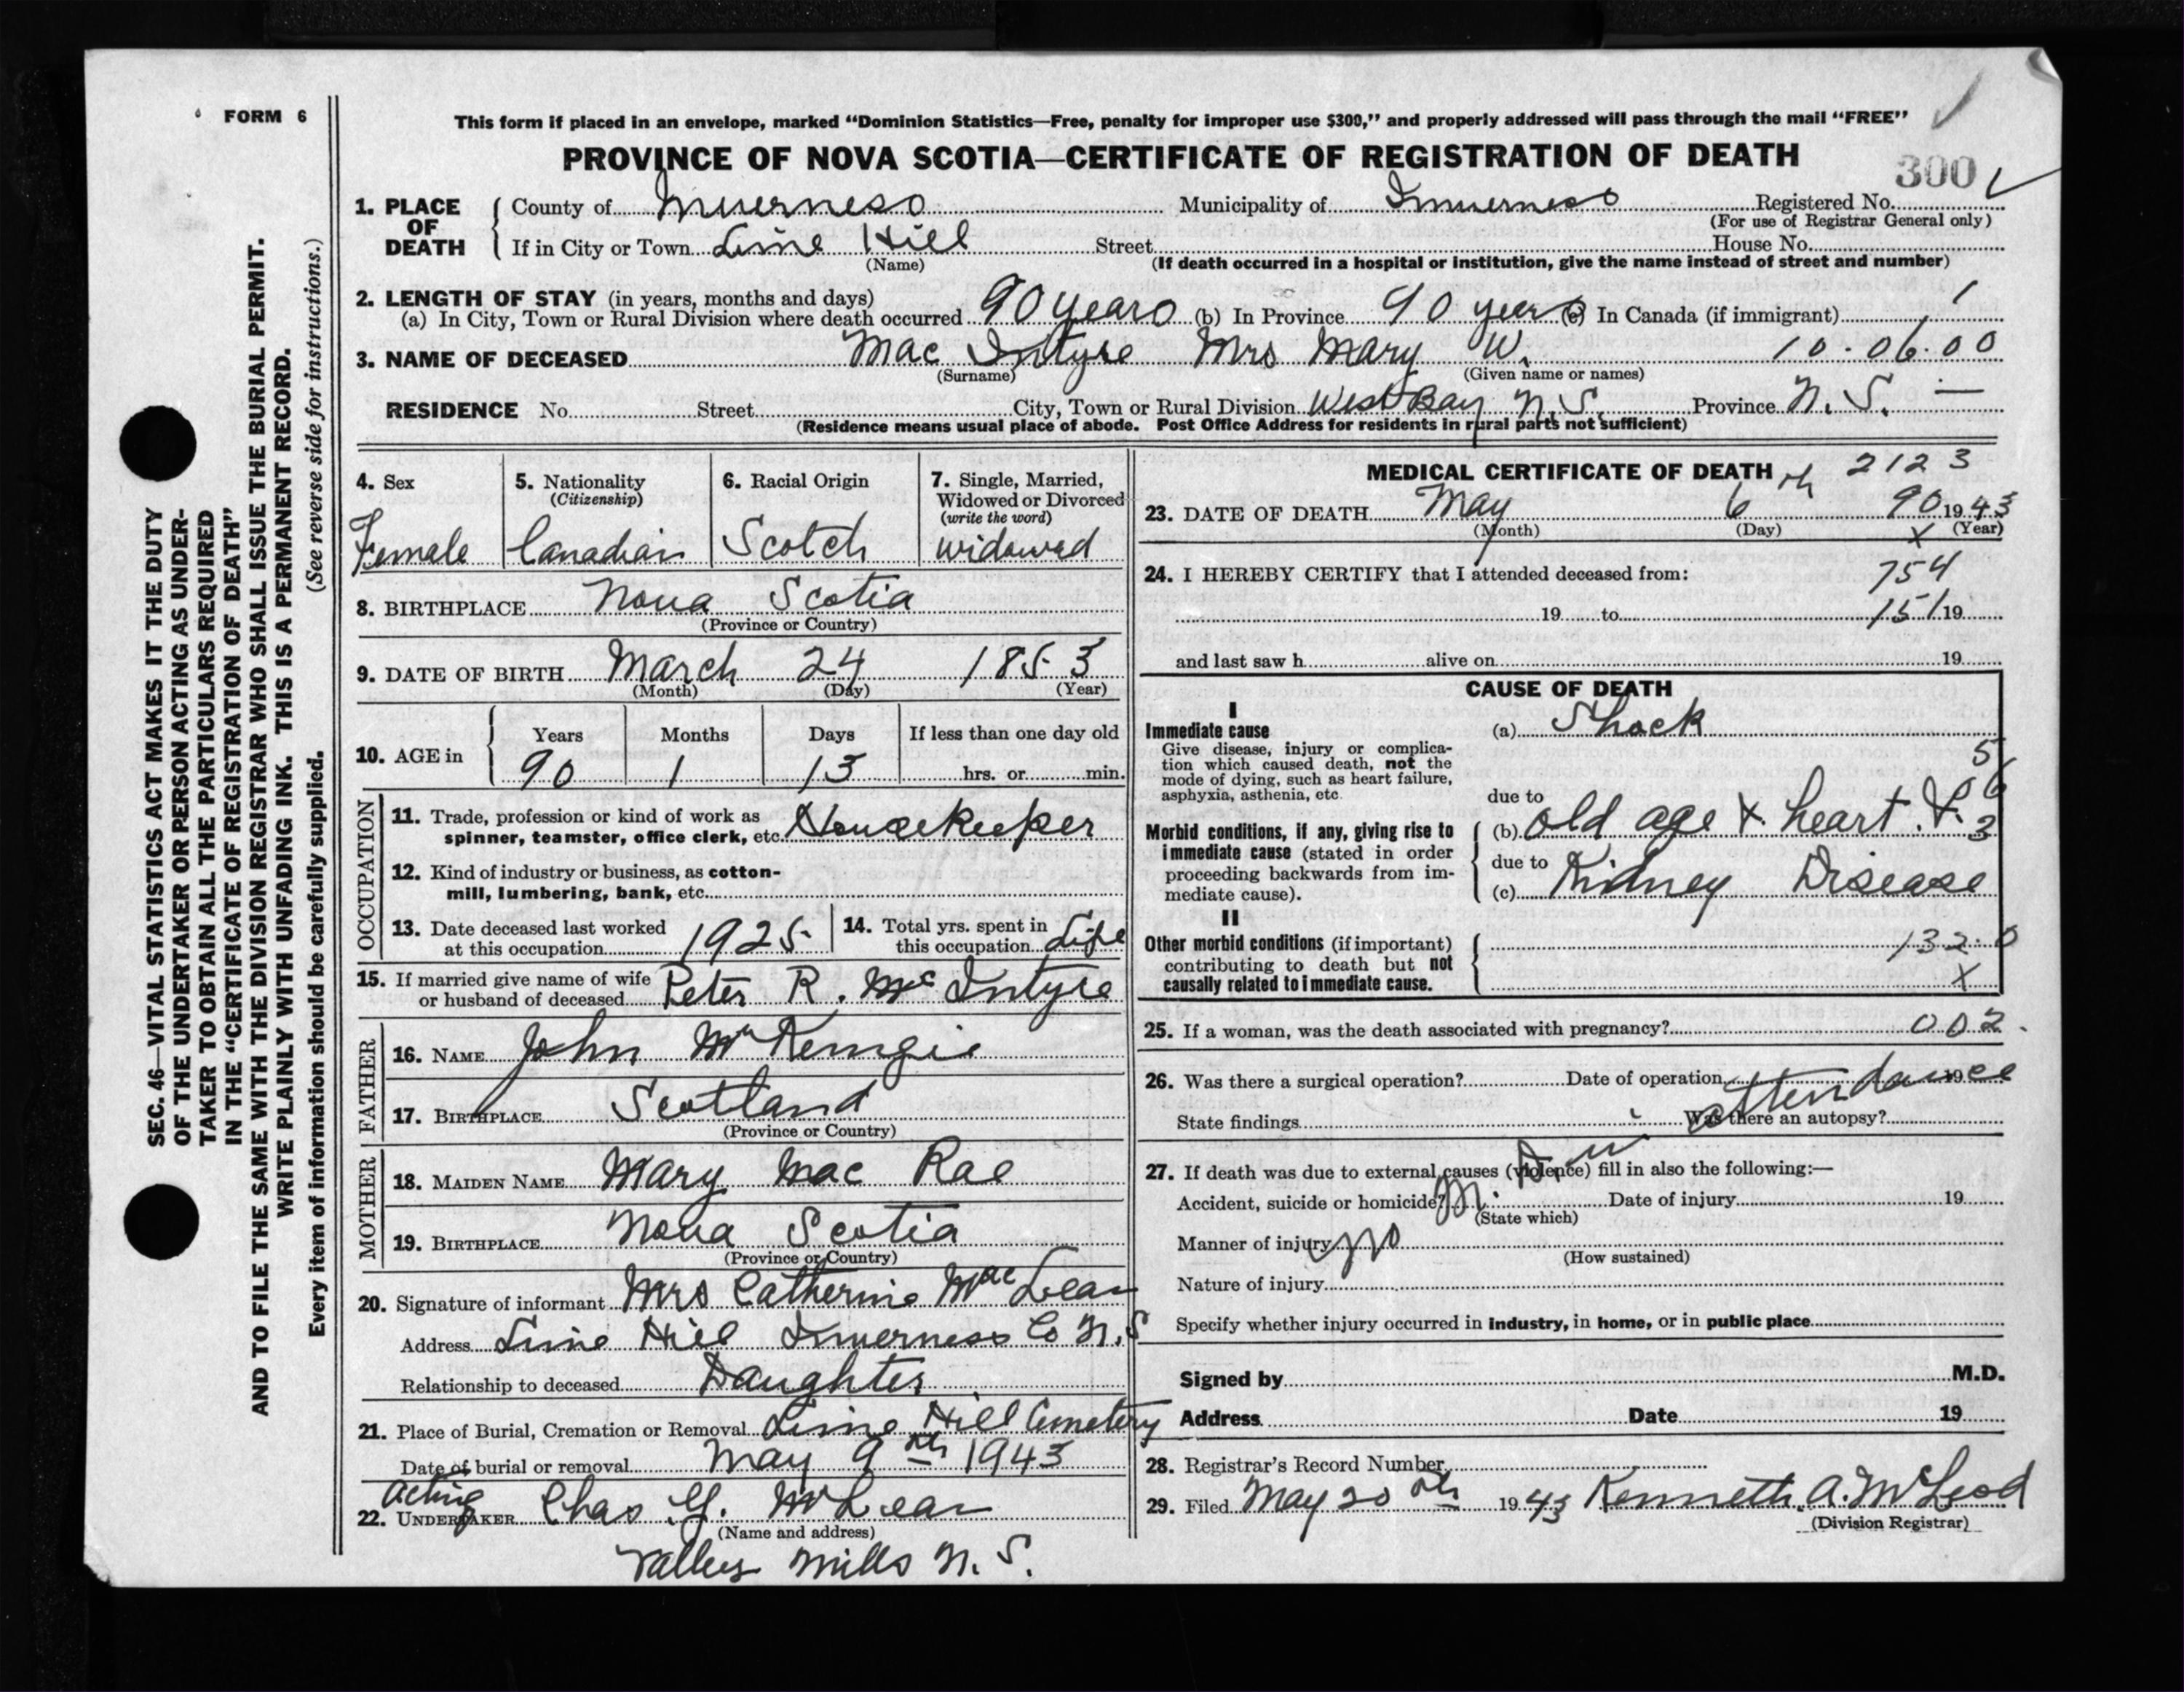 FORM 6
This form if placed in an envelope, marked "Dominion Statistics—Free, penalty for improper use $300," and properly addressed will pass through the mail "FREE"
PROVINCE OF NOVA SCOTIA—CERTIFICATE OF REGISTRATION OF DEATH
300
1. PLACE OF DEATH
County of Inverness Municipality of Inverness Registered No.
(For use of Registrar General only)
If in City or Town Lime Hill Street House No.
(Name) (If death occurred in a hospital or institution, give the name instead of street and number)
2. LENGTH OF STAY (in years, months and days)
(a) In City, Town or Rural Division where death occurred 90 years (b) In Province 90 years (c) In Canada (if immigrant)
3. NAME OF DECEASED Mac Intyre Mrs Mary W. 10.06.00
(Surname) (Given name or names)
RESIDENCE No. Street City, Town or Rural Division West Bay N.S. Province N.S. —
(Residence means usual place of abode. Post Office Address for residents in rural parts not sufficient)
SEC. 46—VITAL STATISTICS ACT MAKES IT THE DUTY
OF THE UNDERTAKER OR PERSON ACTING AS UNDER-
TAKER TO OBTAIN ALL THE PARTICULARS REQUIRED
IN THE "CERTIFICATE OF REGISTRATION OF DEATH"
AND TO FILE THE SAME WITH THE DIVISION REGISTRAR WHO SHALL ISSUE THE BURIAL PERMIT.
WRITE PLAINLY WITH UNFADING INK. THIS IS A PERMANENT RECORD.
Every item of information should be carefully supplied. (See reverse side for instructions.)
4. Sex 5. Nationality 6. Racial Origin 7. Single, Married,
(Citizenship) Widowed or Divorced
(write the word)
Female Canadian Scotch widowed
8. BIRTHPLACE Nova Scotia
(Province or Country)
9. DATE OF BIRTH March 24 1853
(Month) (Day) (Year)
10. AGE in Years Months Days If less than one day old
90 1 13 hrs. or min.
OCCUPATION
11. Trade, profession or kind of work as
spinner, teamster, office clerk, etc. Housekeeper
12. Kind of industry or business, as cotton-
mill, lumbering, bank, etc.
13. Date deceased last worked
at this occupation 1925
14. Total yrs. spent in
this occupation Life
15. If married give name of wife
or husband of deceased Peter R. McIntyre
FATHER
16. NAME John McKengie
17. BIRTHPLACE Scotland
(Province or Country)
MOTHER
18. MAIDEN NAME Mary Mac Rae
19. BIRTHPLACE Nova Scotia
(Province or Country)
20. Signature of informant Mrs Catherine MacLean
Address Lime Hill Inverness Co N.S
Relationship to deceased Daughter
21. Place of Burial, Cremation or Removal Lime Hill Cemetery
Date of burial or removal May 9th 1943
acting
22. UNDERTAKER Chas. McLean
(Name and address)
Valley Mills N.S.
MEDICAL CERTIFICATE OF DEATH 2123
23. DATE OF DEATH May 6th 90 1943
(Month) (Day) X (Year)
24. I HEREBY CERTIFY that I attended deceased from: 754
19 to 151 19
and last saw h alive on 19
CAUSE OF DEATH
I
Immediate cause (a) Shock
Give disease, injury or complica-
tion which caused death, not the
mode of dying, such as heart failure,
asphyxia, asthenia, etc.
5
6
3
due to
(b) old age & heart &
Morbid conditions, if any, giving rise to
immediate cause (stated in order
proceeding backwards from im-
mediate cause).
due to
(c) Kidney Disease
II
Other morbid conditions (if important)
contributing to death but not
causally related to immediate cause.
132.0
X
25. If a woman, was the death associated with pregnancy? 002.
26. Was there a surgical operation? Date of operation 19
State findings Was there an autopsy?
27. If death was due to external causes (violence) fill in also the following:—
Accident, suicide or homicide? Date of injury 19
(State which)
Manner of injury
(How sustained)
Nature of injury
Specify whether injury occurred in industry, in home, or in public place
no M. D. in attendance
Signed by M.D.
Address Date 19
28. Registrar's Record Number
29. Filed May 20th 1943 Kenneth A. McLeod
(Division Registrar)